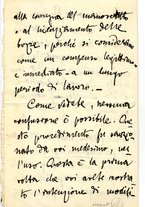 alla consegna del manoscritto
- al licenziamento delle
bozze, perché si considerano
come un compenso legittimo
e immediato - a un lungo
periodo di lavoro. -
Come vedete, nessuna
confusione è possibile. Che
sto procedimento fu osser-
nato da voi medesimo, nel
l'uso. Questa è la prima
volta che voi avete mostra
l'intenzione di modif